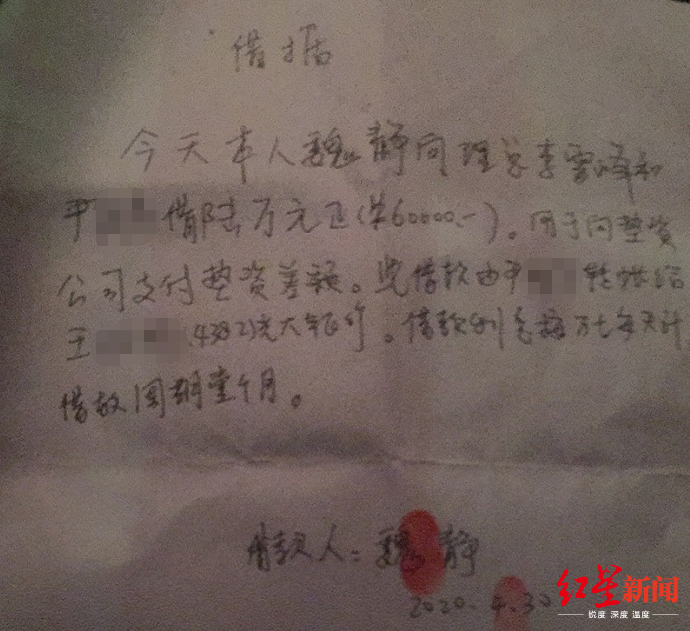 借据
今天本人魏静向理兴李雪峰和
平 借陆万元正(共60000.-)。用于向垫资
公司支付垫资差额。此借款由平 转账给
王 (4382)光大银行。借款利息按万七每天计
借款周期壹个月。
借款人：魏静
2020.4.30
红星新闻
锐度 深度 温度